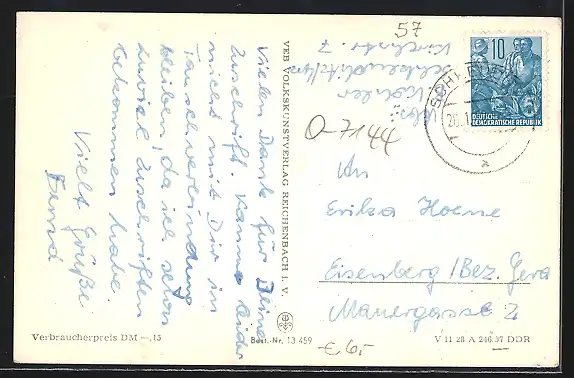 57
Vielen Dank für Deine
Zuschrift. Kann leider
nicht mit Dir in
Tauschverbindung
bleiben, da ich schon
zuviel Zuschriften
bekommen habe.
Viele Grüße
Bernd
VEB VOLKSKUNSTVERLAG REICHENBACH i. V.
Abs.:
Köhler
Kirchstr. 7
10
DEUTSCHE
DEMOKRATISCHE REPUBLIK
5
O-7144
An
Erika Hoene
Eisenberg/Bez. Gera
Mauergasse 2
Verbraucherpreis DM —,15
Best.-Nr. 13 459
€ 6,-
V 11 28 A 246 57 DDR